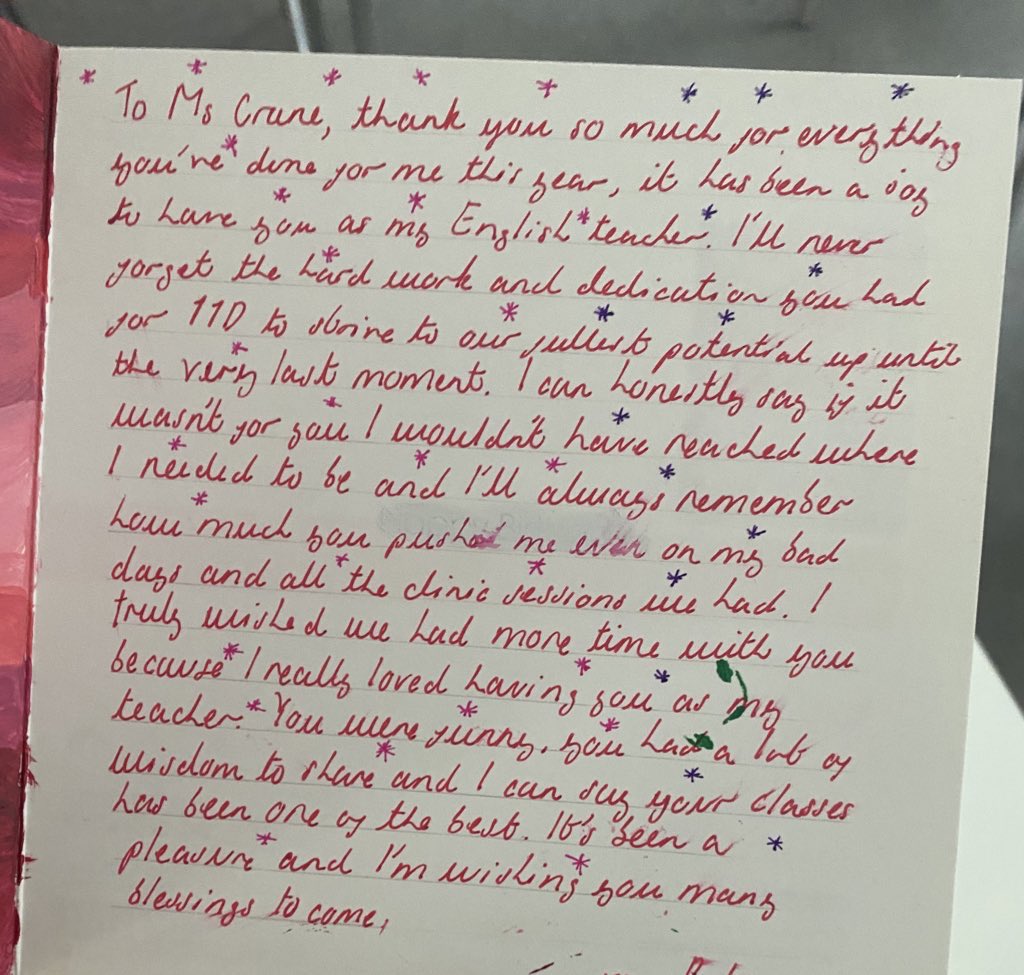 To Ms Crane, thank you so much for everything
you've done for me this year, it has been a joy
to have you as my English teacher. I'll never
forget the hard work and dedication you had
for 11D to strive to our fullest potential up until
the very last moment. I can honestly say if it
wasn't for you I wouldn't have reached where
I needed to be and I'll always remember
how much you pushed me even on my bad
days and all the clinic sessions we had. I
truly wished we had more time with you
because I really loved having you as my
teacher. You were funny, you had a lot of
wisdom to share and I can say your classes
has been one of the best. It's been a
pleasure and I'm wishing you many
blessings to come,